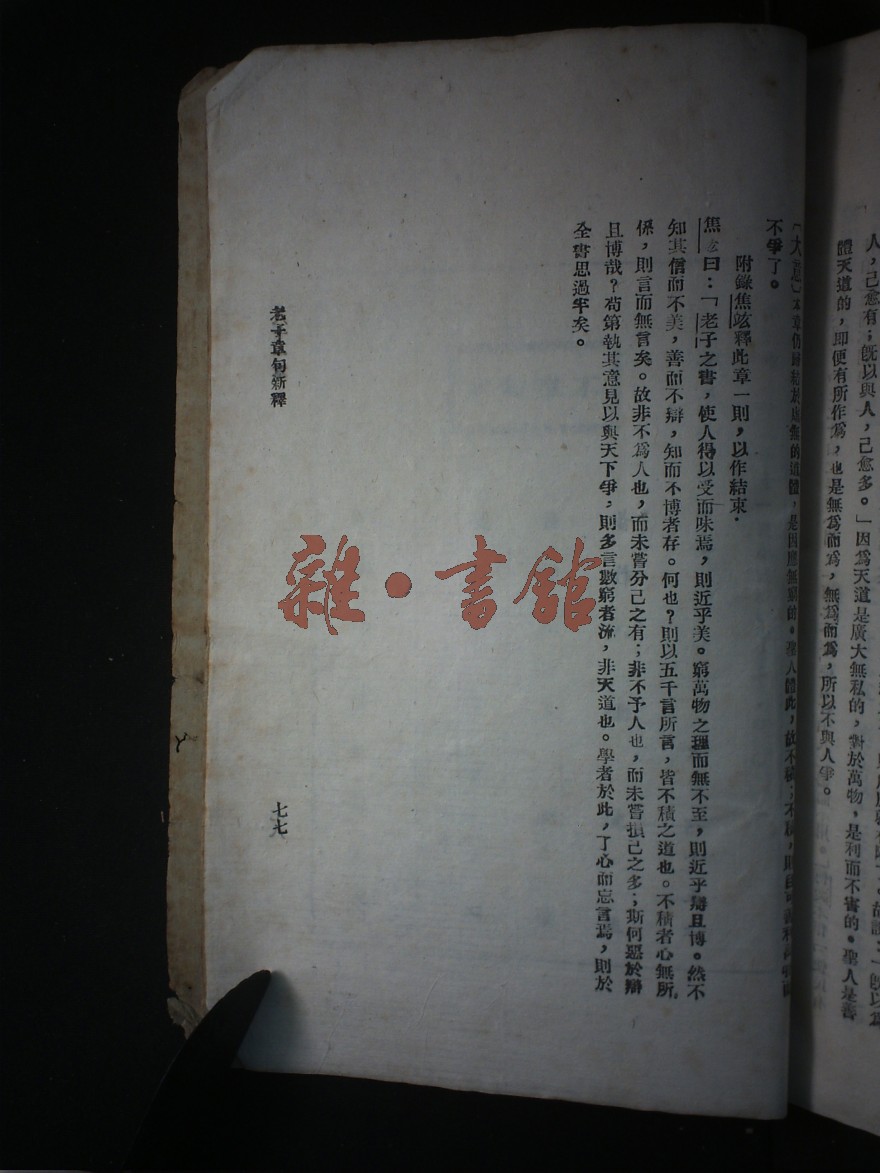 人，己愈有；旣以與人，己愈多。」因爲天道是廣大無私的，對於萬物，是利而不害的。聖人是善
體天道的，即便有所作爲，也是無爲而爲，無爲而爲，所以不與人爭。
〔大意〕本章仍歸結於虛無的道體，是因應無窮的。聖人體此，故不積；不積，則
不爭了。
附錄焦竑釋此章一則，以作結束．
焦竑曰：「老子之書，使人得以受而味焉，則近乎美。窮萬物之理而無不至，則近乎辯且博。然不
知其信而不美，善而不辯，知而不博者存。何也？則以五千言所言，皆不積之道也。不積者心無所
係，則言而無言矣。故非不爲人也，而未嘗分己之有；非不予人也，而未嘗損己之多；斯何惡於辯
且博哉？苟第執其意見以與天下爭，則多言數窮者流，非天道也。學者於此，了心而忘言焉，則於
全書思過半矣。
老子章句新釋
七七
雜·書館